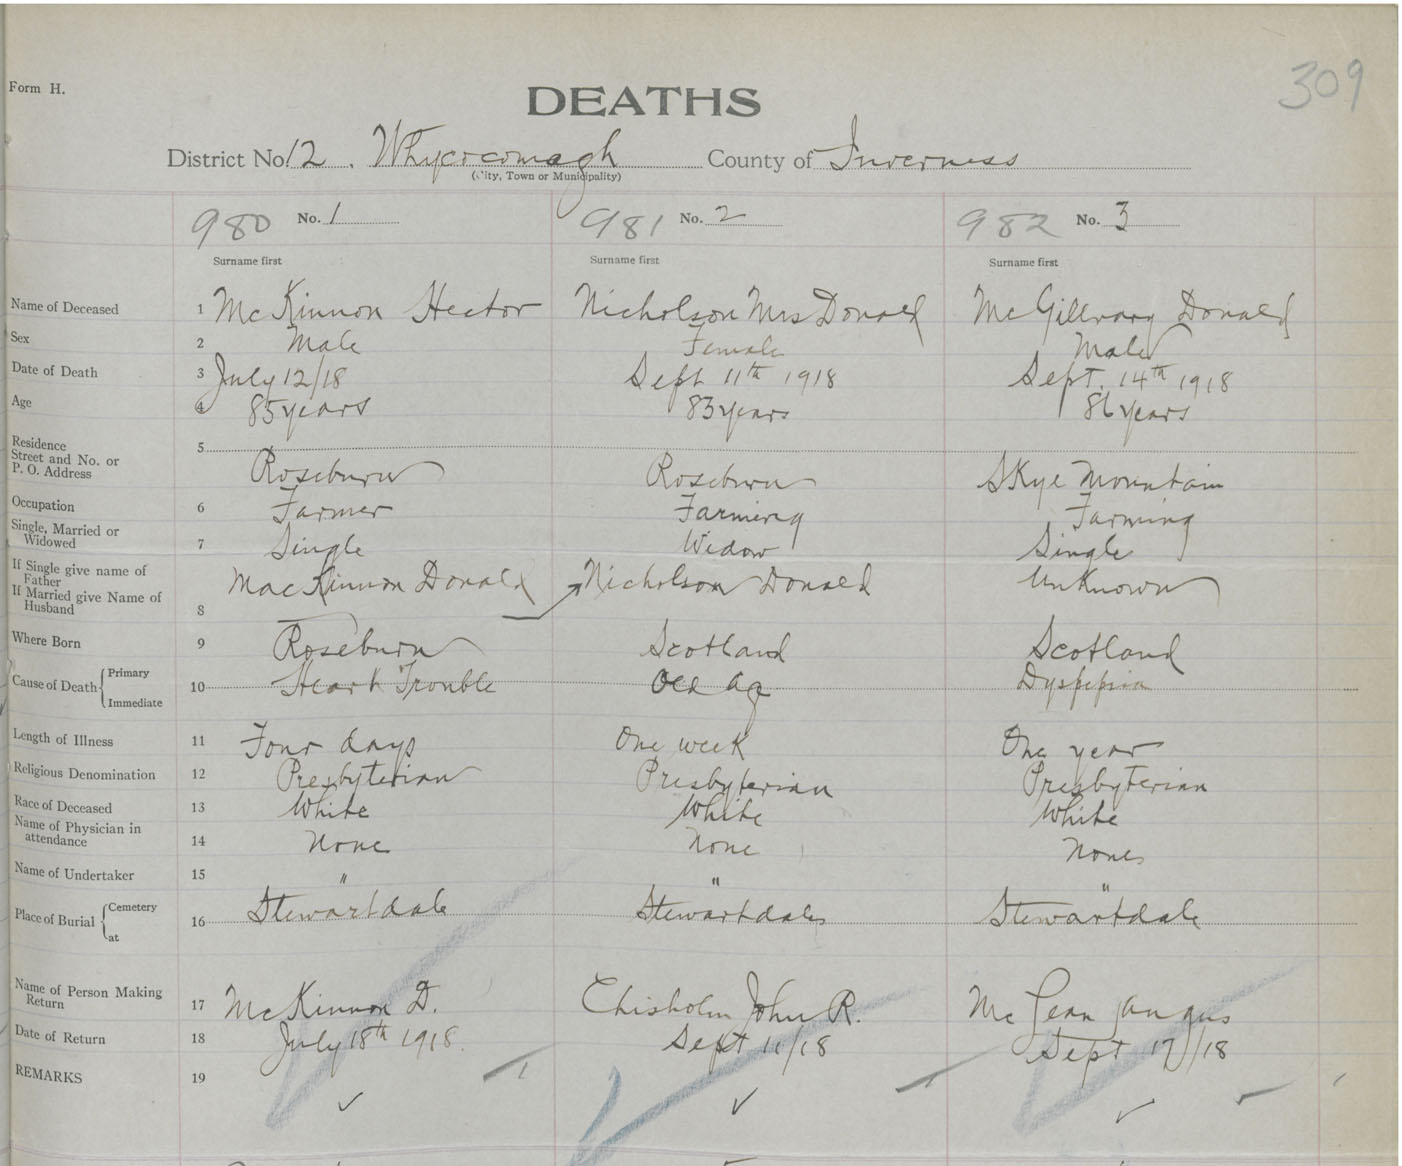 309
Form H.
DEATHS
District No. 12. Whycocomagh County of Inverness
(City, Town or Municipality)
980 No. 1 981 No. 2 982 No. 3
Surname first Surname first Surname first
Name of Deceased 1 McKinnon Hector Nicholson Mrs Donald McGillvary Donald
Sex 2 Male Female Male
Date of Death 3 July 12/18 Sept 11th 1918 Sept. 14th 1918
Age 4 85 years 83 years 86 years
Residence
Street and No. or
P. O. Address 5 Roseburn Roseburn Skye Mountain
Occupation 6 Farmer Farming Farming
Single, Married or
Widowed 7 Single Widow Single
If Single give name of
Father
If Married give Name of
Husband 8 MacKinnon Donald Nicholson Donald Unknown
Where Born 9 Roseburn Scotland Scotland
Cause of Death Primary
Immediate 10 Heart Trouble Old Ag Dyspepsia
Length of Illness 11 Four days One week One year
Religious Denomination 12 Presbyterian Presbyterian Presbyterian
Race of Deceased 13 White White White
Name of Physician in
attendance 14 None None None
Name of Undertaker 15 " " "
Place of Burial Cemetery
at 16 Stewartdale Stewartdale Stewartdale
Name of Person Making
Return 17 McKinnon D. Chisholm John R. McLean Angus
Date of Return 18 July 18th 1918. Sept 11/18 Sept 17/18
REMARKS 19